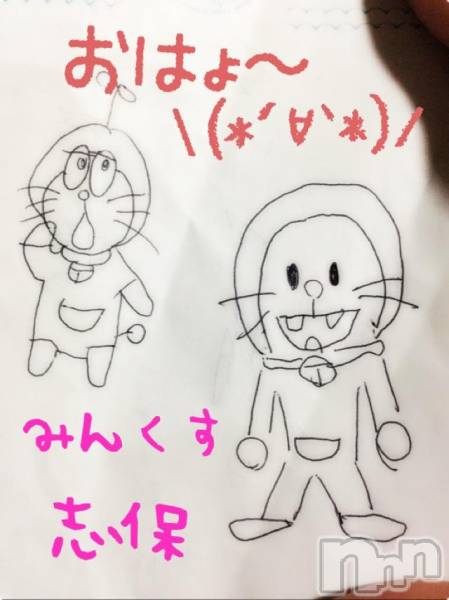 おはよ〜
\(*´∀`*)/
みんくす
志保
nnn